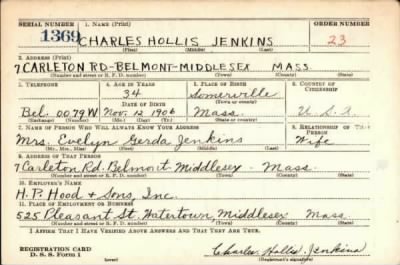 SERIAL NUMBER 1. NAME (Print) ORDER NUMBER
1369 CHARLES HOLLIS JENKINS 23
(First) (Middle) (Last)
2. ADDRESS (Print)
7 CARLETON RD-BELMONT-MIDDLESEX MASS.
(Number and street or R. F. D. number) (Town) (County) (State)
3. TELEPHONE 4. AGE IN YEARS 5. PLACE OF BIRTH 6. COUNTRY OF CITIZENSHIP
34 Somerville
DATE OF BIRTH
Bel. 0079W Nov. 12 1906 Mass. U.S.A.
(Exchange) (Number) (Mo.) (Day) (Yr.) (State or country)
7. NAME OF PERSON WHO WILL ALWAYS KNOW YOUR ADDRESS 8. RELATIONSHIP OF THAT PERSON
Mrs. Evelyn Gerda Jenkins Wife
(Mr., Mrs., Miss) (First) (Middle) (Last)
9. ADDRESS OF THAT PERSON
7 Carleton Rd. Belmont Middlesex - Mass.
(Number and street or R. F. D. number) (Town) (County) (State)
10. EMPLOYER'S NAME
H. P. Hood & Sons, Inc.
11. PLACE OF EMPLOYMENT OR BUSINESS
525 Pleasant St. Watertown, Middlesex Mass.
(Number and street or R. F. D. number) (Town) (County) (State)
I AFFIRM THAT I HAVE VERIFIED ABOVE ANSWERS AND THAT THEY ARE TRUE.
REGISTRATION CARD
D. S. S. Form 1 Charles Hollis Jenkins
(Registrant's signature)